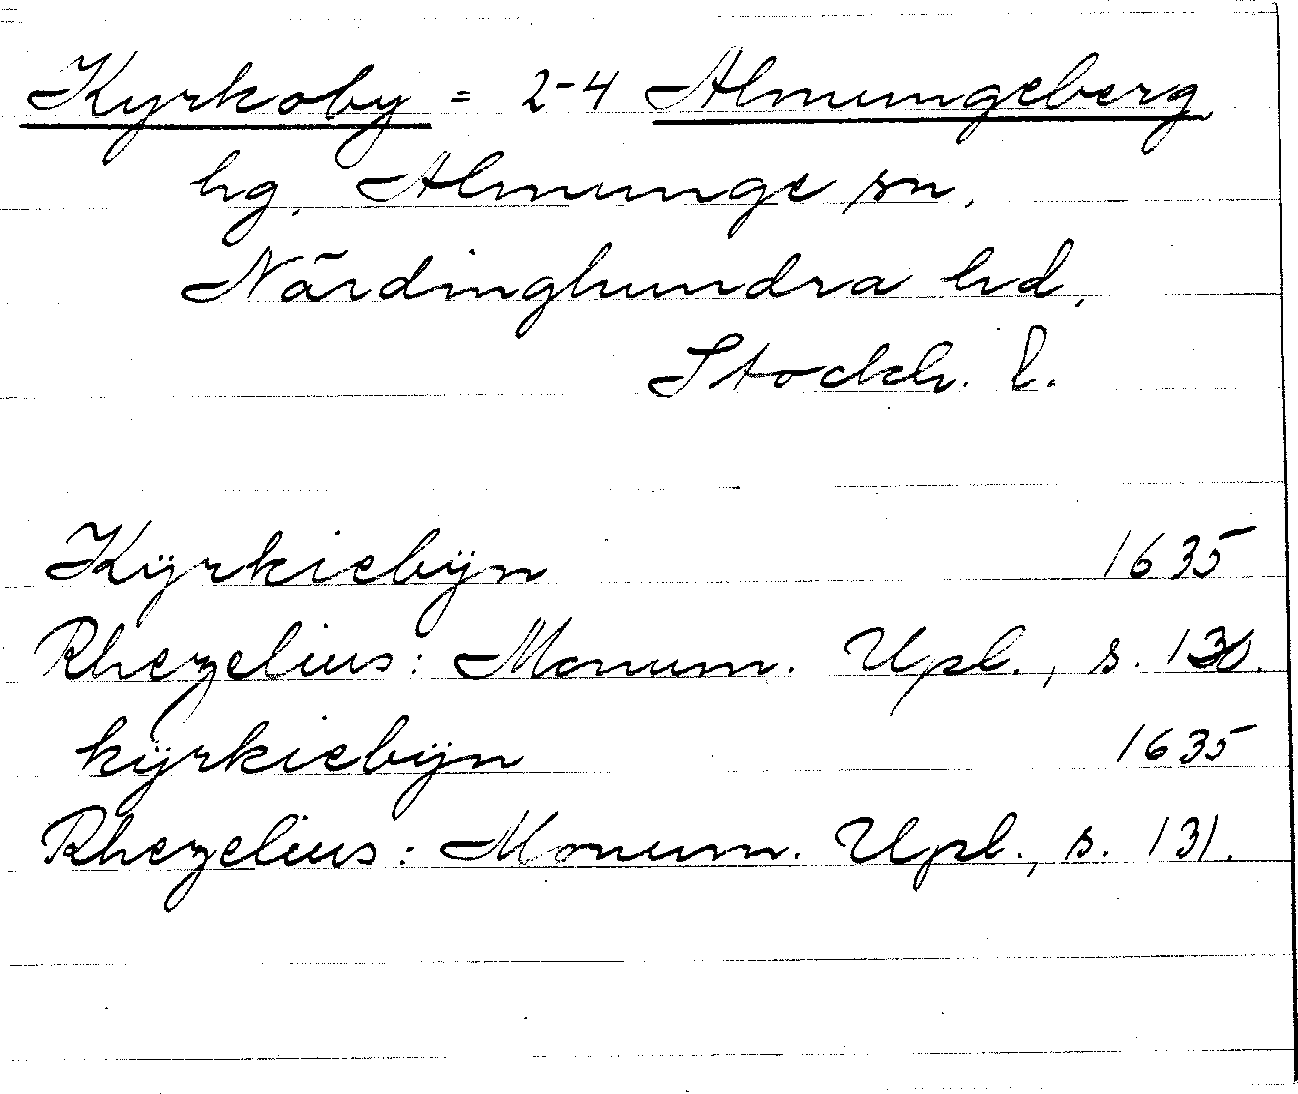 Kyrkoby = 2-4 Almungeberg
hg, Almunge sn,
Närdinghundra hd,
Stockh. l.
Kÿrkiebÿn 1635
Rhezelius: Monum. Upl., s. 130.
kÿrkiebÿn 1635
Rhezelius: Monum. Upl., s. 131.